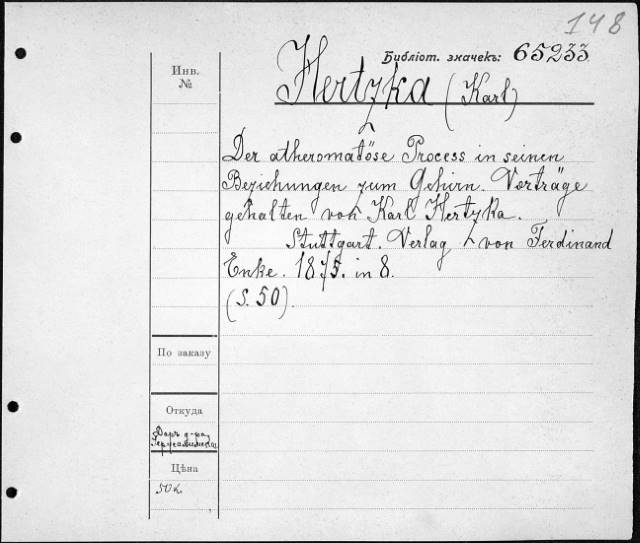 148
Библіот. значекъ: 65233
Инв.
№
Hertzka (Karl)
Der atheromatöse Process in seinen
Beziehungen zum Gehirn. Vorträge
gehalten von Karl Hertzka.
Stuttgart. Verlag von Ferdinand
Enke. 1875. in 8.
(S. 50).
По заказу
Откуда
Даръ д-ра
Цѣна
50к.